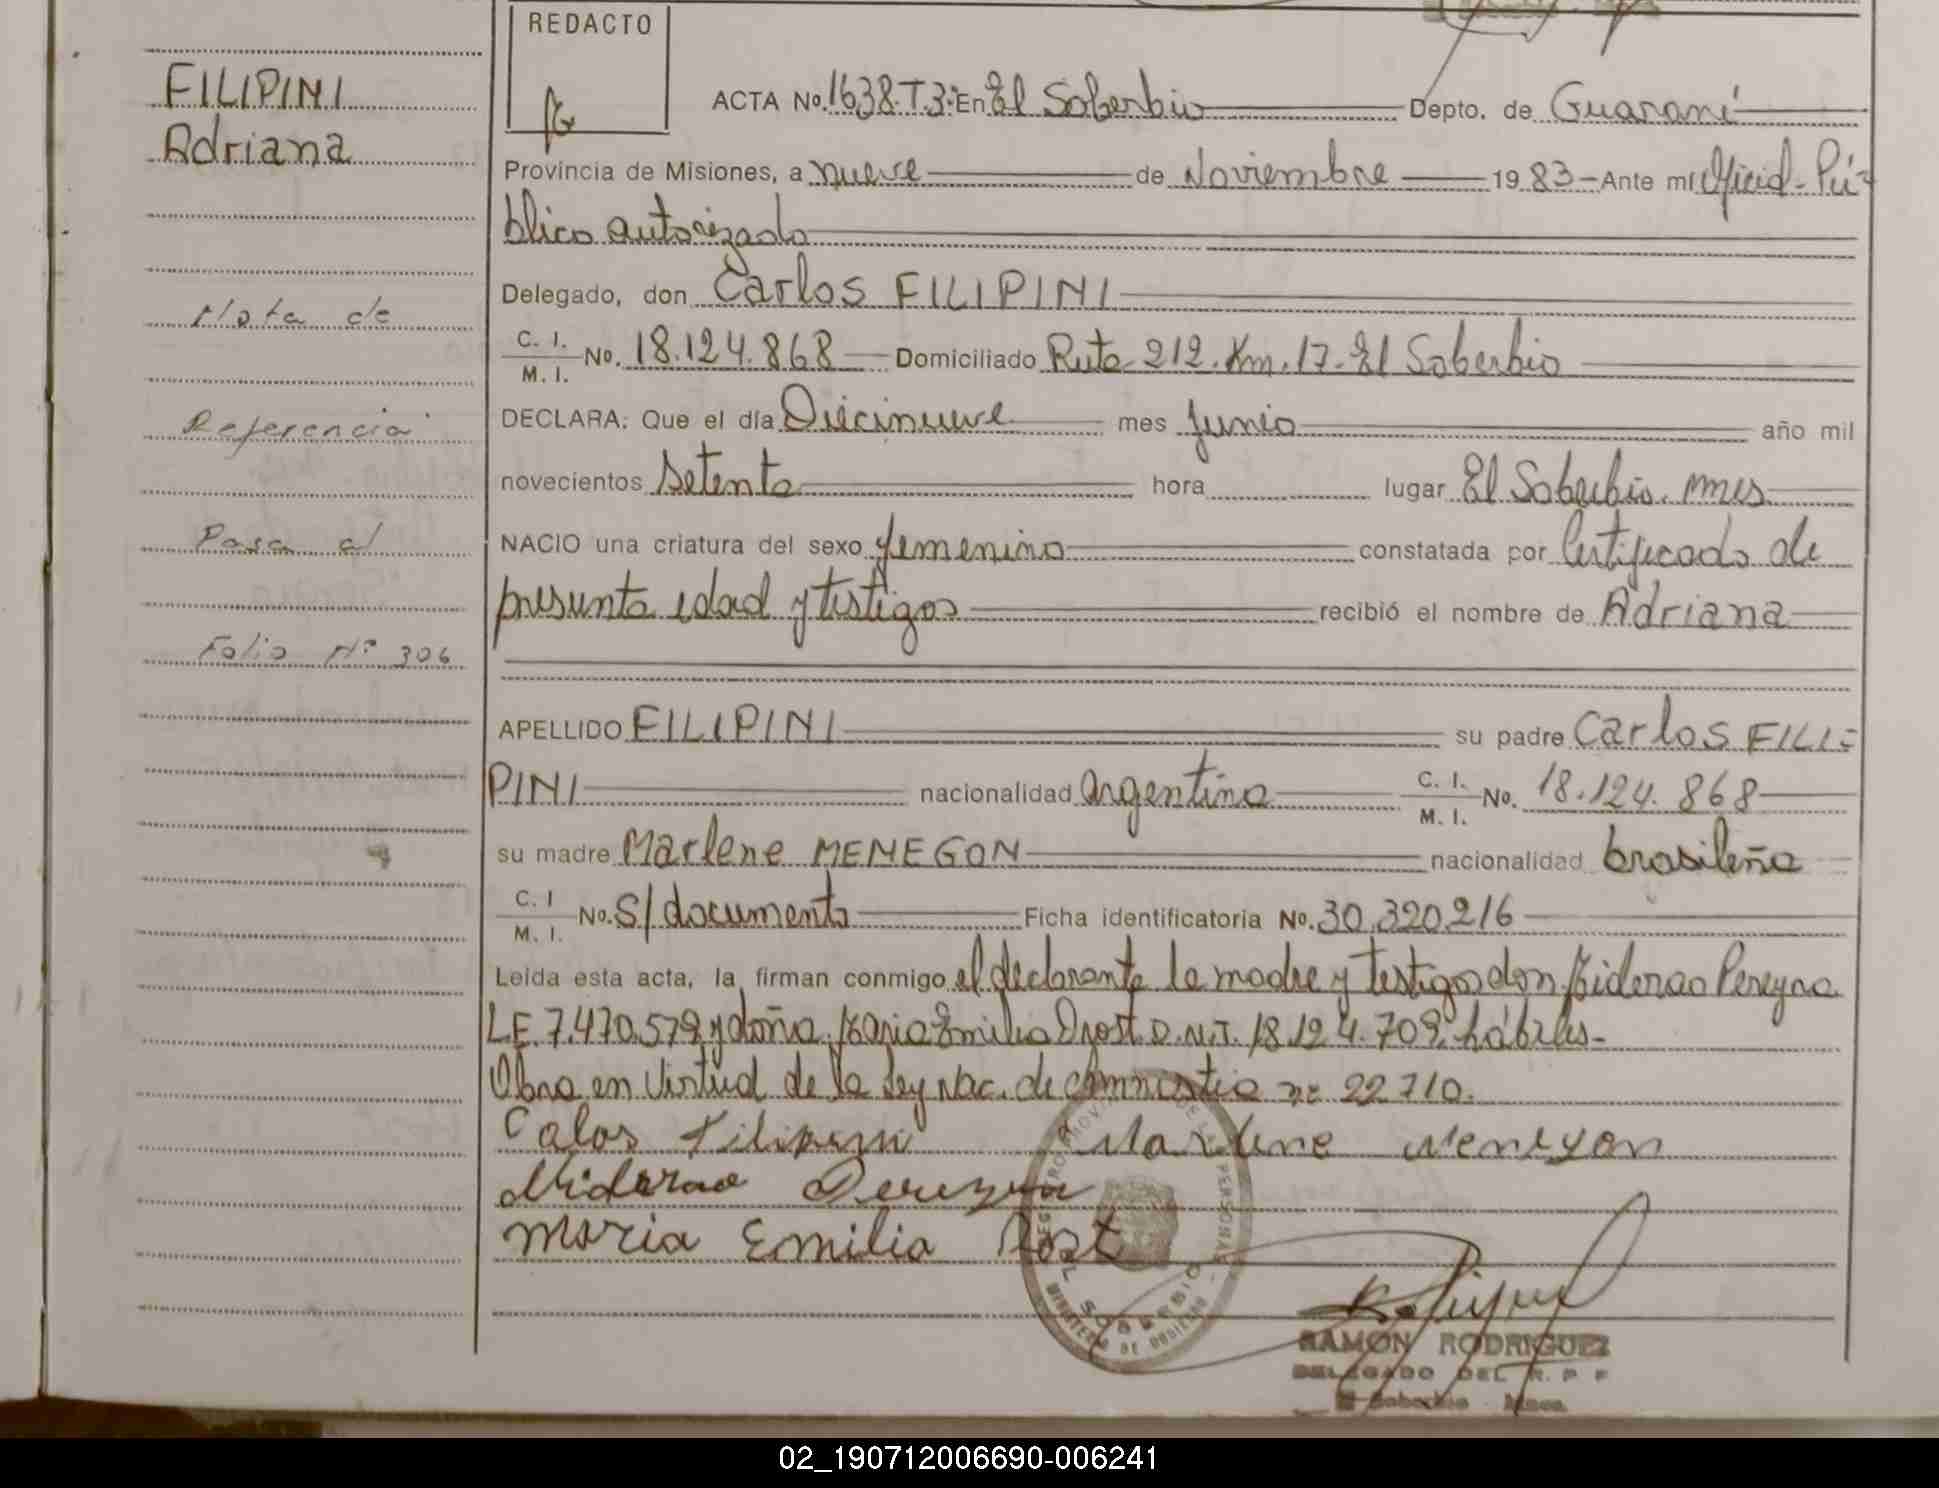 REDACTO
FILIPINI
Adriana
Nota de
Referencia
Pasa al
Folio Nº 306
ACTA No. 1638.T.3: En El Soberbio Depto. de Guaraní
Provincia de Misiones, a nueve de Noviembre 1983 - Ante mí Oficial - Pú-
blico autorizado
Delegado, don Carlos FILIPINI
C. I.
M. I. No. 18.124.868 Domiciliado Ruta 212. Km. 17. El Soberbio
DECLARA: Que el día Diecinueve mes Junio año mil
novecientos Setenta hora lugar El Soberbio. Mnes
NACIO una criatura del sexo femenino constatada por Certificado de
presunta edad y testigos recibió el nombre de Adriana
APELLIDO FILIPINI su padre Carlos FILI-
PINI nacionalidad argentina C. I.
M. I. No. 18.124.868
su madre Marlene MENEGON nacionalidad brasileña
C. I
M. I. No. S/documento Ficha identificatoria No. 30.320.216
Leída esta acta, la firman conmigo el declarante la madre y testigos don Pereyra
L.E. 7.470.579 y doña María Emilia D.N.I. 18.124.709 hábiles-
Obra en Virtud de la Ley Nac. de amnistia nº 22710.
Calos Filipini Marlene Menegon
Pereyra
Maria Emilia
REGISTRO PROVINCIAL DE LAS PERSONAS
EL SOBERBIO
MINISTERIO DE GOBIERNO
RAMON RODRIGUEZ
DELEGADO DEL R. P. P
El Soberbio Mnes.
02_190712006690-006241